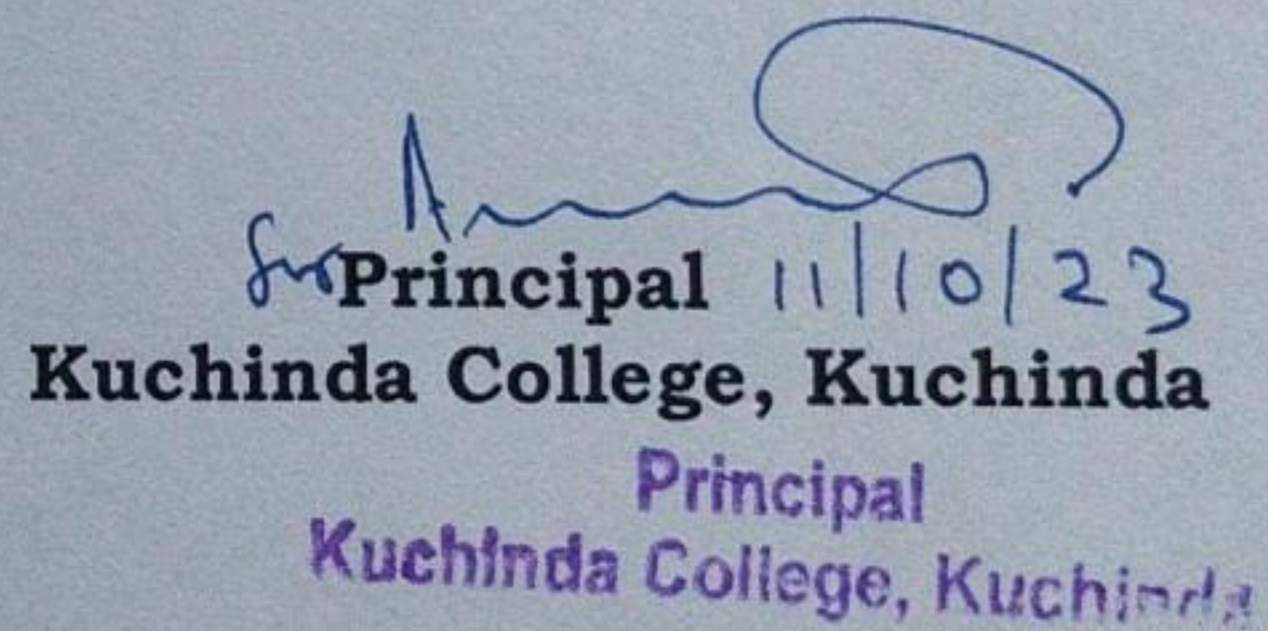 for Principal 11/10/23
Kuchinda College, Kuchinda
Principal
Kuchinda College, Kuchinda